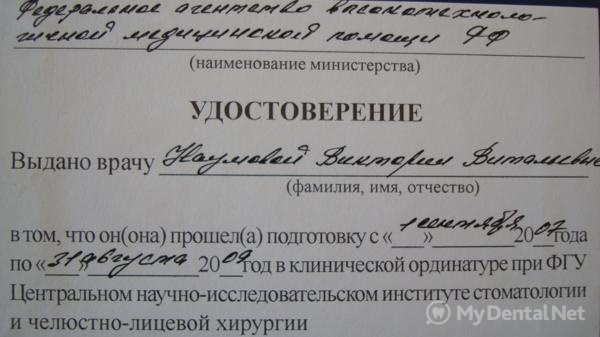 Федеральное агентство высокотехноло-
гичной медицинской помощи РФ
(наименование министерства)
УДОСТОВЕРЕНИЕ
Выдано врачу Наумовой Виктории Витальевне
(фамилия, имя, отчество)
в том, что он(она) прошел(а) подготовку с «1» сентября 2007 года
по «31» августа 2009 год в клинической ординатуре при ФГУ
Центральном научно-исследовательском институте стоматологии
и челюстно-лицевой хирургии
MyDentalNet